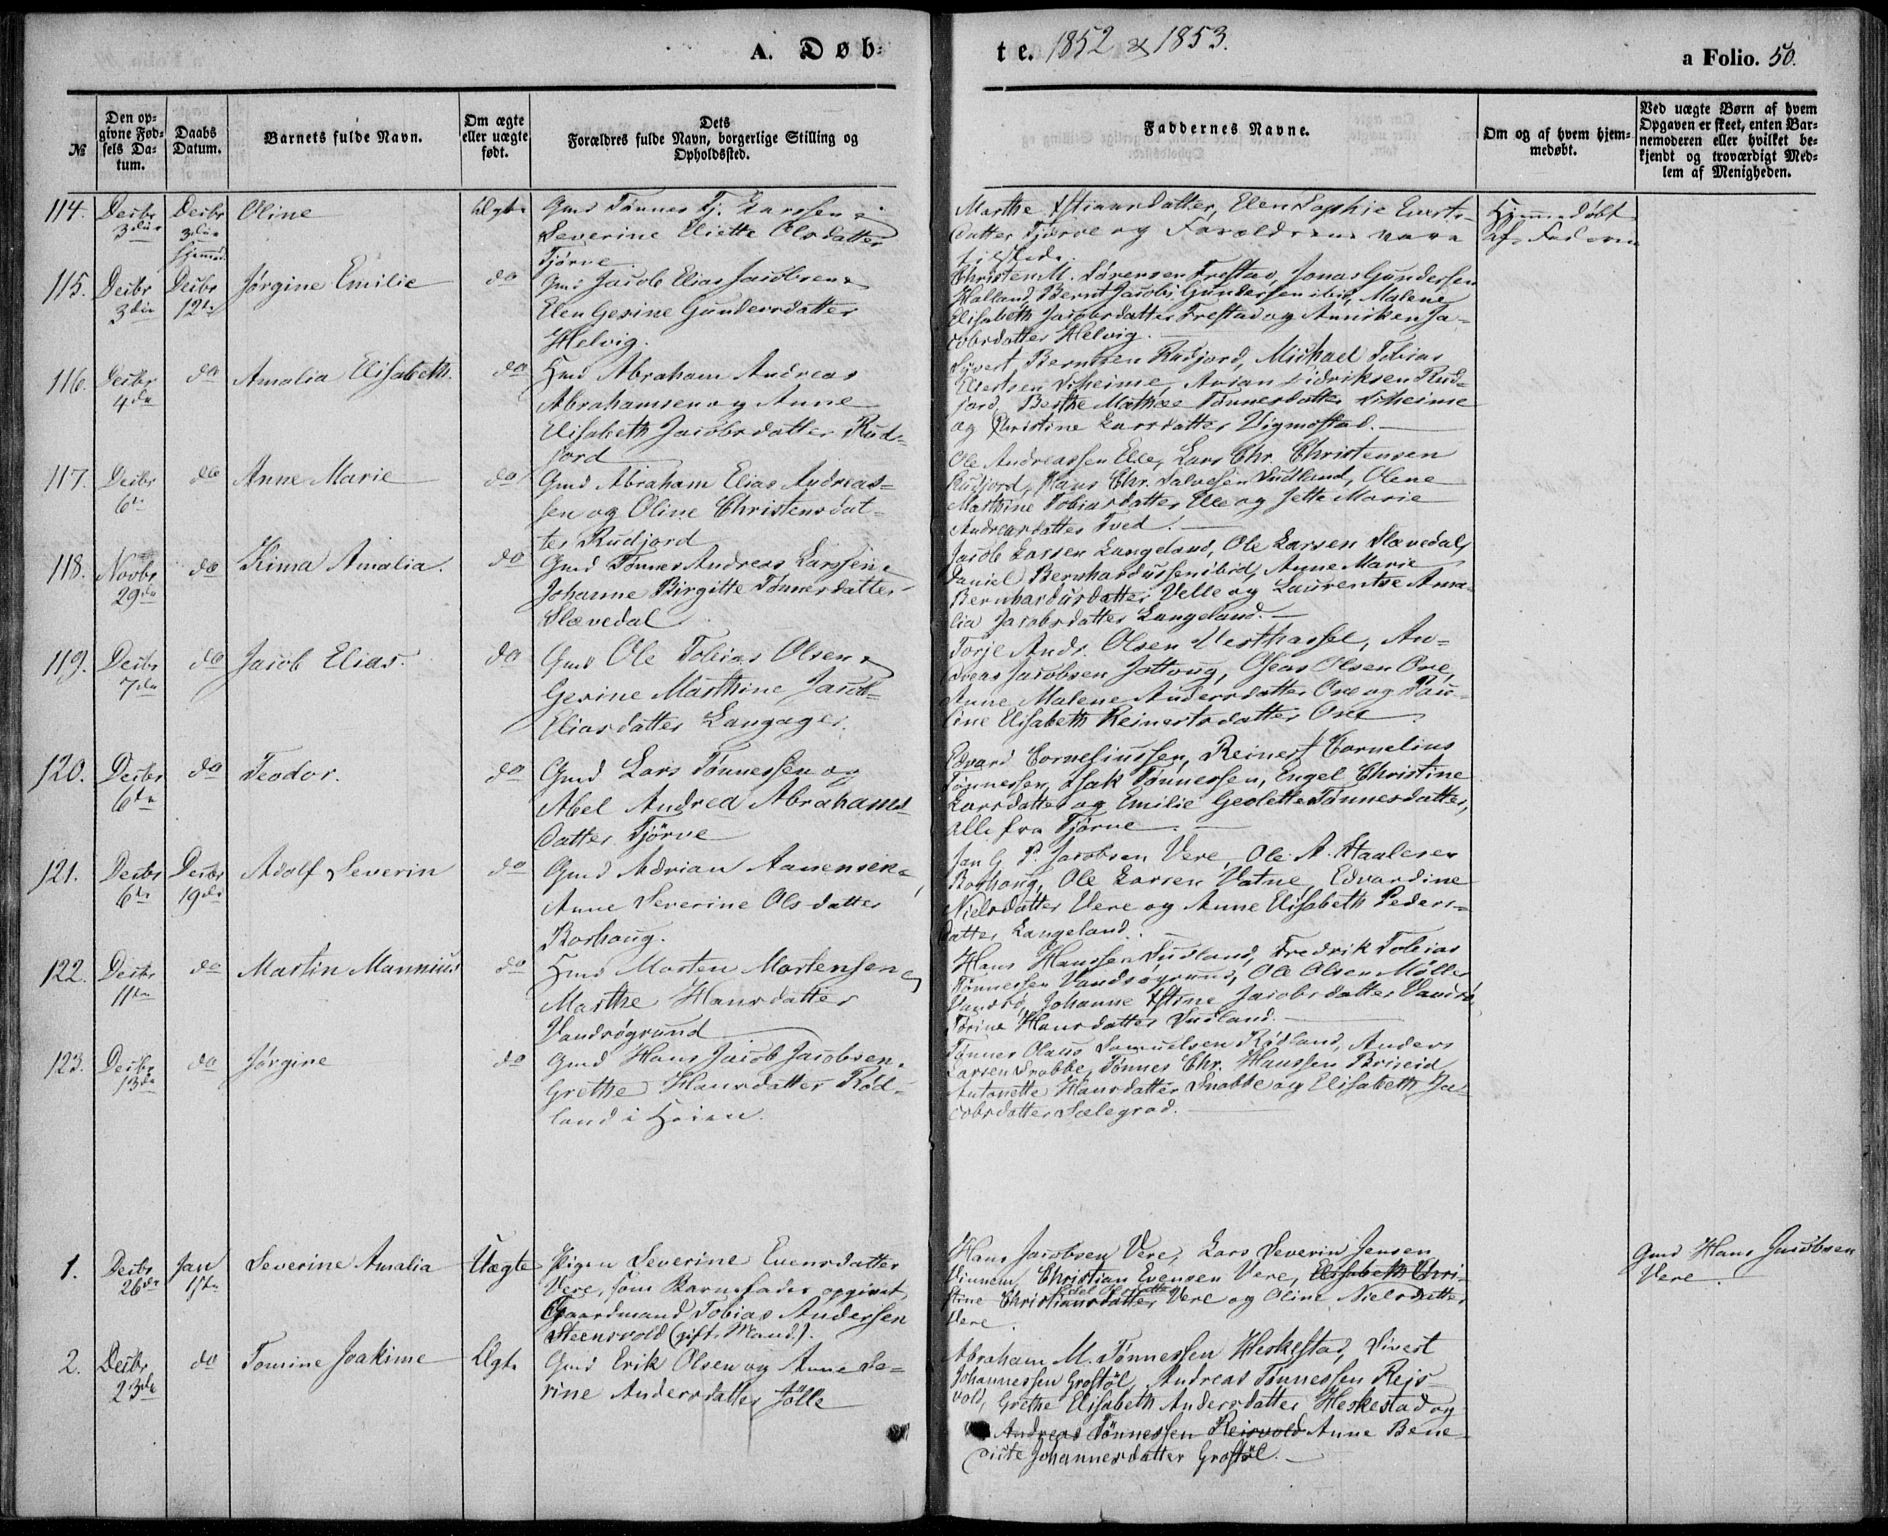 A. Døb-
te. 1852 & 1853.
a Folio. 50.
№
Den op-
givne Fød-
sels Da-
tum.
Daabs
Datum.
Barnets fulde Navn.
Om ægte
eller uægte
født.
Dets
Forældres fulde Navn, borgerlige Stilling og
Opholdssted.
Faddernes Navne.
Om og af hvem hjem-
medøbt.
Ved uægte Børn af hvem
Opgaven er skeet, enten Bar-
nemoderen eller hvilket be-
kjendt og troværdigt Med-
lem af Menigheden.
114. Decbr 3die Decbr 3die hjemmd. Oline Ægte
Gmd Tønnes Tj. Larssen &
Severine Eliette Olsdatter
Tjørve.
Marthe Stiansdatter, Elen Sophie Everts-
datter Tjørve og Forældrene vare
tilstede.
Hjemmedøbt
af Faderen
115. Decbr 3die Decbr 12te Jørgine Emilie do
Gmd Jacob Elias Jacobsen &
Elen Gesine Gundersdatter
Helvig.
Christen M. Sørensen Frestad, Jonas Gundersen
Halland, Bernt Jacobs Gundersen ibid, Malene
Elisabeth Jacobsdatter Frestad og Anniken Ja-
cobsdatter Helvig.
116. Decbr 4de do Amalia Elisabeth. do
Hmd Abraham Andreas
Abrahamsen og Anne
Elisabeth Jacobsdatter Rud-
jord
Syvert Berntsen Rudjord, Michael Tobias
Elertsen Skeime, Arian Didriksen Rud-
jord, Berthe Mathea Tønnesdatter Skeime
og Christine Larsdatter Vigmostad.
117. Decbr 6te do Anne Marie do
Gmd Abraham Elias Andreas-
sen og Oline Christensdat-
ter Rudjord
Ole Andreassen Elle, Lars Chr. Christensen
Rudjord, Hans Chr. Salvesen Sudland, Olene
Marthine Tobiasdatter Elle og Jette Marie
Andreasdatter Tved.
118. Novbr 29de do Kima Amalia. do
Gmd Tønnes Andreas Larssen &
Johanne Birgitte Tønnesdatter
Slævedal
Jacob Larsen Langeland, Ole Larsen Slævedal,
Daniel Bernhardussen ibid, Anne Marie
Bernhardusdatter Velle og Laurentse Ama-
lia Jacobsdatter Langeland.
119. Decbr 7de do Jacob Elias. do
Gmd Ole Tobias Olsen &
Gesine Marthine Jacob-
Eliasdatter Langager.
Torje Andr. Olsen Vesthassel, An-
dreas Jacobsen Jottoug, Oseas Olsen Ore,
Anne Malene Andersdatter Ore og Pau-
line Elisabeth Reinertsdatter Ore
120. Decbr 6te do Teodor. do
Gmd Lars Tønnessen og
Abel Andrea Abrahams-
datter Tjørve
Edvard Corneliussen, Reinert Cornelius
Tønnessen, Isak Tønnessen, Engel Christine
Larsdatter og Emilie Geolette Tønnesdatter,
alle fra Tjørve.
121. Decbr 6te Decbr 19de Adolf Severin do
Gmd Adrian Aanensen &
Anne Severine Olsdatter
Borhaug.
Jan G. P. Jacobsen Vere, Ole A. Staalesen
Borhaug, Ole Larsen Vatne, Edvardine
Nielsdatter Vere og Anne Elisabeth Peders-
datter Langeland.
122. Decbr 11te do Martin Mannius do
Hmd Morten Mortensen og
Marthe Hansdatter
Vandsøgrund
Hans Hanssen Sudland, Fredrik Tobias
Tønnessen Vandsøgrund, Ole Olsen Møller
Vandsø, Johanne Stine Jacobsdatter Vandsø,
Torine Hansdatter Sudland.
123. Decbr 13de do Jørgine do
Gmd Hans Jacob Jacobsen &
Grethe Hansdatter Rød-
land i Heien.
Tønnes Olaus Samuelsen Rødland, Anders
Larsen Snobbe, Tønnes Chr. Hanssen Briseid
Antonette Hansdatter Snobbe og Elisabeth Ja-
cobsdatter Sælegrad.
1. Decbr 26de Jan 1ste Severine Amalia Uægte
Pigen Severine Evensdatter
Vere, som Barnefader opgivet
Gaardmand Tobias Andersen
Steensvold (gift Mand).
Hans Jacobsen Vere, Lars Severin Jensen
Vinnem, Christian Evensen Vere, Elisabeth Chri-
stine Christiansdatter Vere og Oline Nielsdatter
Vere.
Gmd Hans Jacobsen
Vere.
2. Decbr 23de do Tomine Joakime Ægte
Gmd Erik Olsen og Anne Se-
rine Andersdatter Jølle
Abraham M. Tønnessen Heskestad, Sivert
Johannessen Grostøl, Andreas Tønnessen Reis-
vold, Grethe Elisabeth Andersdatter Heskestad og
Andreas Tønnessen Reisvold Anne Bene-
dicte Johannesdatter Grostøl.